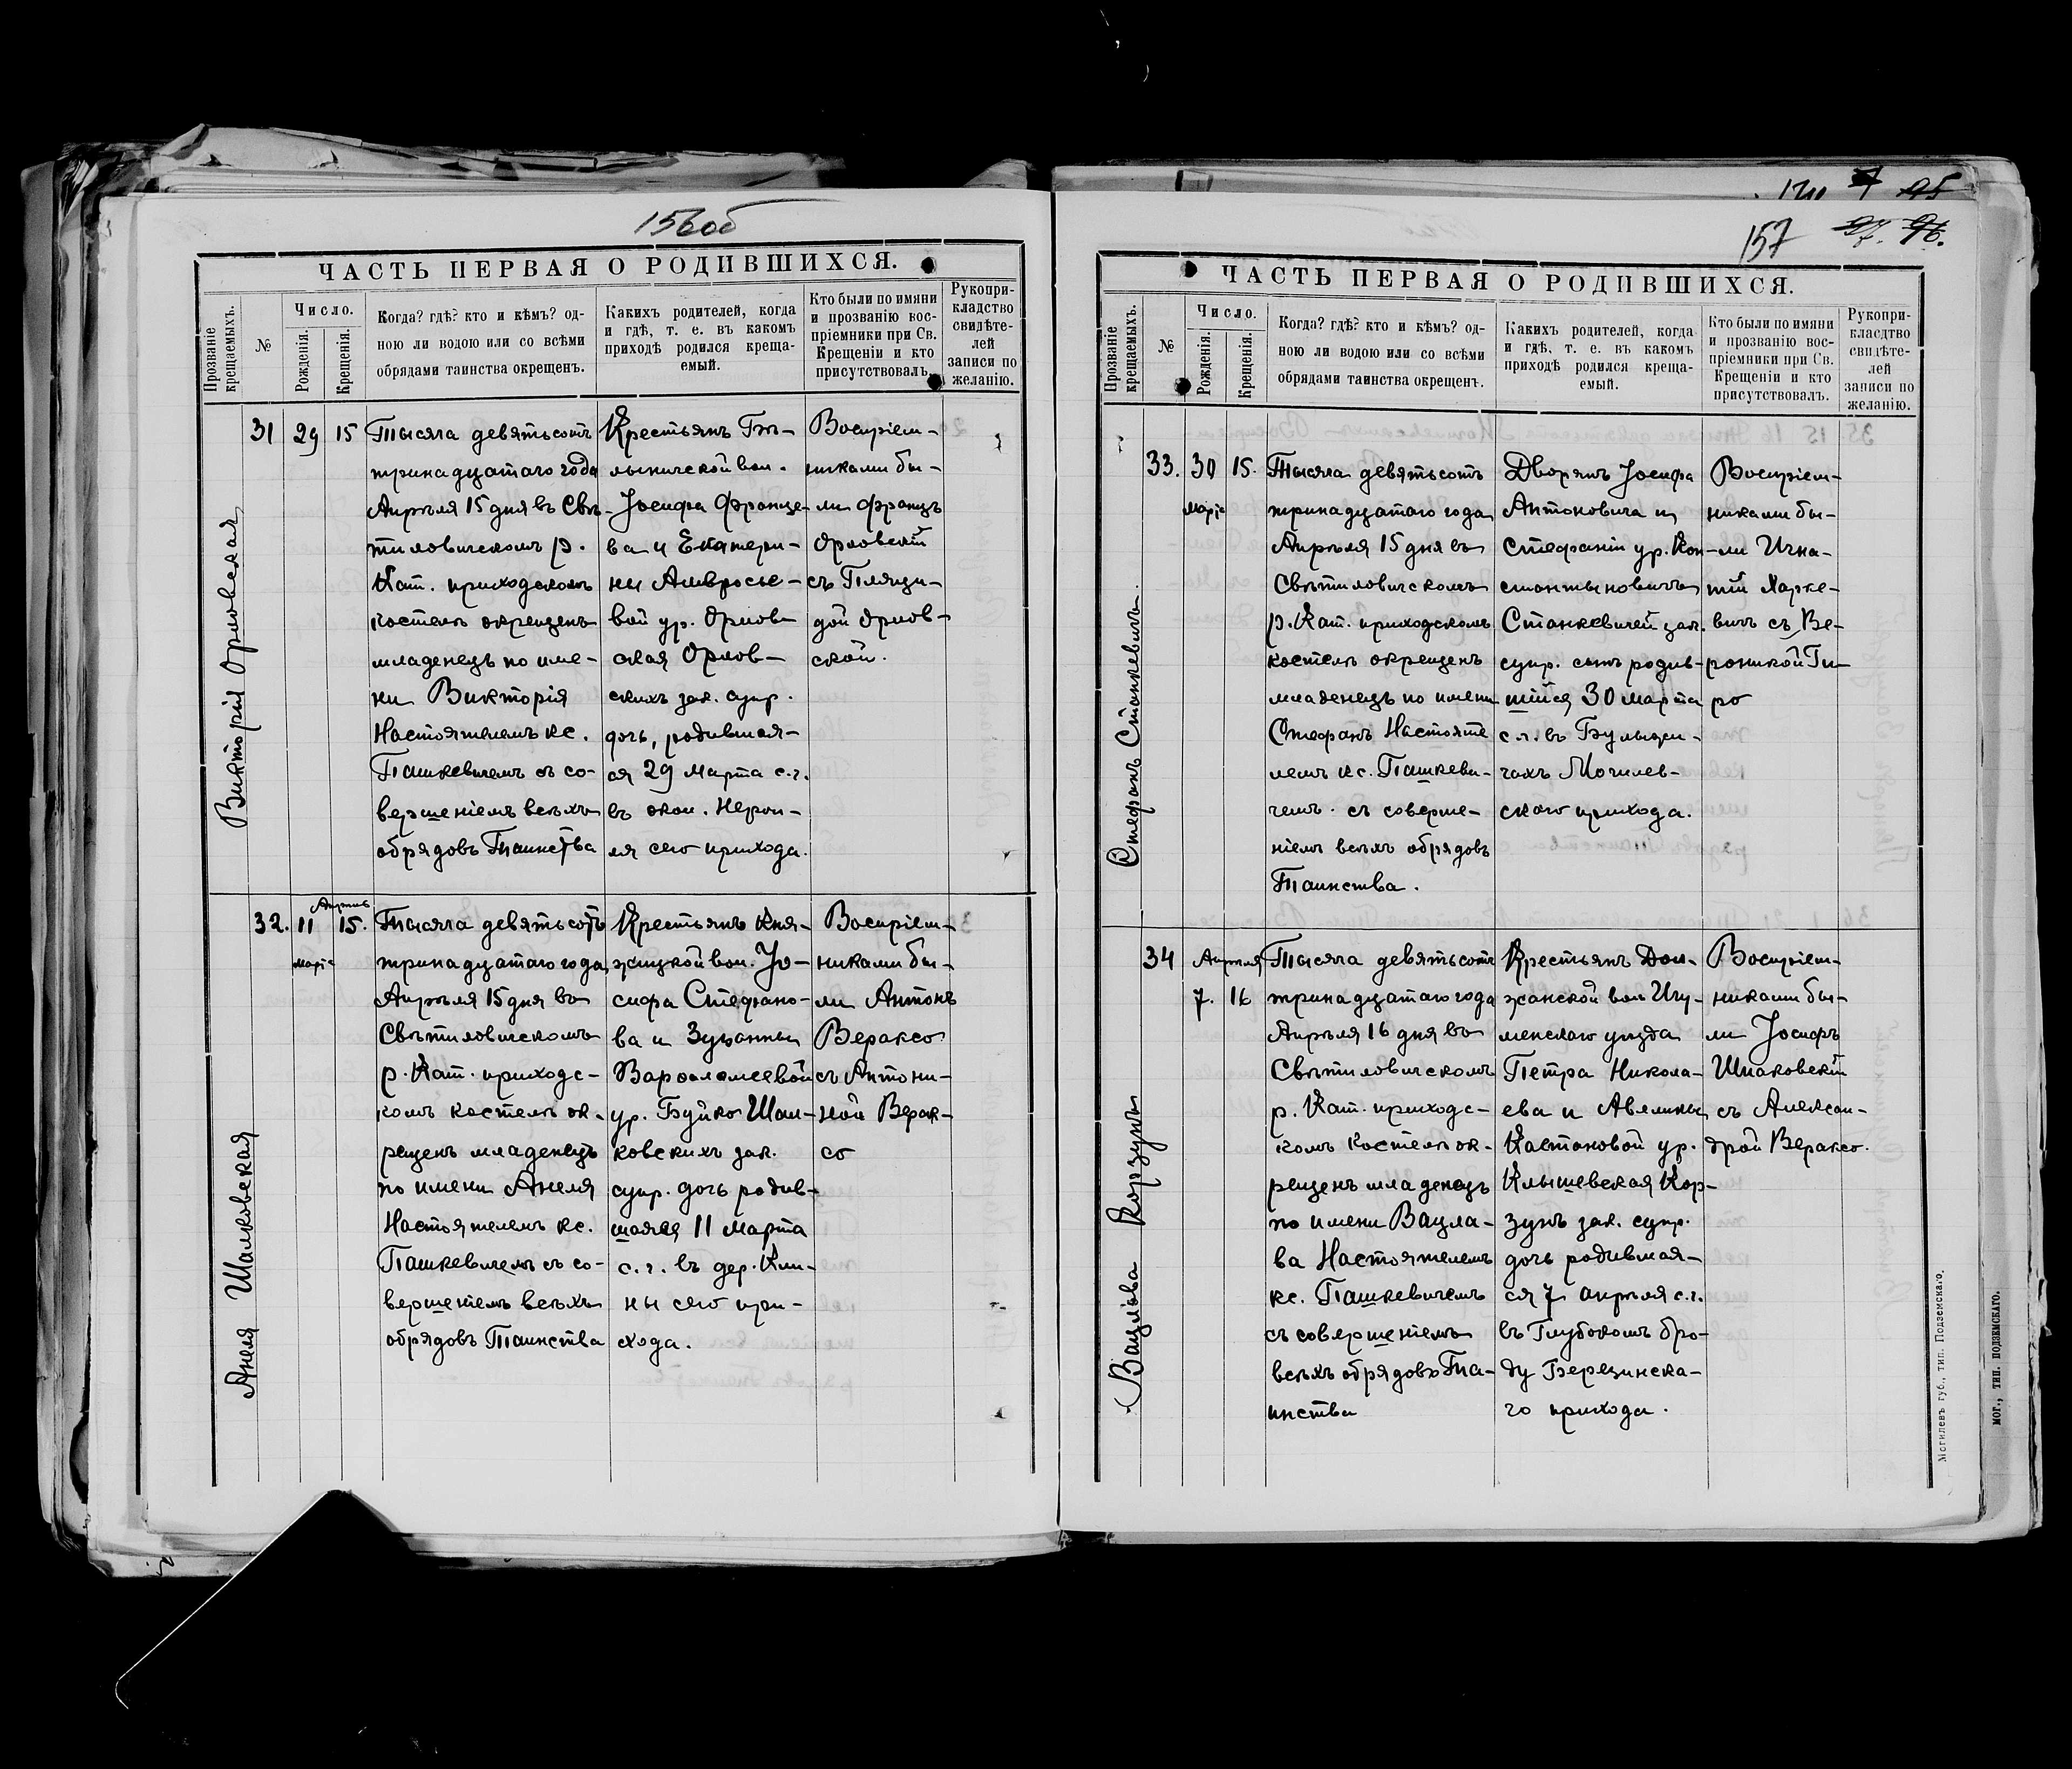 156об
ЧАСТЬ ПЕРВАЯ О РОДИВШИХСЯ.
Прозваніе крещаемыхъ.
№
Число.
Рожденія.
Крещенія.
Когда? гдѣ? кто и кѣмъ? од-
ною ли водою или со всѣми
обрядами таинства окрещенъ.
Какихъ родителей, когда
и гдѣ, т. е. въ какомъ
приходѣ родился креща-
емый.
Кто были по имяни
и прозванію вос-
пріемники при Св.
Крещеніи и кто
присутствовалъ.
Рукопри-
кладство
свидѣте-
лей
записи по
желанію.
Викторія Орловская
31
29
15
Тысяча девятьсотъ
тринадцатаго года
Апрѣля 15 дня въ Свѣ-
тиловичскомъ р.
Кат. приходскомъ
костелѣ окрещенъ
младенецъ по име-
ни Викторія
Настоятелемъ кс.
Пашкевичемъ съ со-
вершеніемъ всѣхъ
обрядовъ Таинства
Крестьянъ Бѣ-
лыничской вол.
Іосифа Францe-
ва и Екатери-
ны Амвросье-
вой ур. Орлов-
ская Орлов-
скихъ зак. супр.
дочь, родившая-
ся 29 марта с.г.
въ окол. Нероп-
ля сего прихода.
Воспріем-
никами бы-
ли Францъ
Орловскій
съ Пляци-
дой Орлов-
ской.
Анеля Шалковская
32.
11
Апрель
15.
Марта
Тысяча девятьсотъ
тринадцатаго года
Апрѣля 15 дня въ
Свѣтиловичскомъ
р. Кат. приходс-
комъ костелѣ ок-
рещенъ младенецъ
по имени Анеля
Настоятелемъ кс.
Пашкевичемъ съ со-
вершеніемъ всѣхъ
обрядовъ Таинства
Крестьянъ Кня-
жицкой вол. Іо-
сифа Стефано-
ва и Зузанны
Варѳоломеевой
ур. Буйко Шал-
ковскихъ зак.
супр. дочь родив-
шаяся 11 марта
с.г. въ дер. Кли-
ны сего при-
хода.
Воспріем-
никами бы-
ли Антонъ
Вераксо
съ Антони-
ной Верак-
со
157
ЧАСТЬ ПЕРВАЯ О РОДИВШИХСЯ.
Прозваніе крещаемыхъ.
№
Число.
Рожденія.
Крещенія.
Когда? гдѣ? кто и кѣмъ? од-
ною ли водою или со всѣми
обрядами таинства окрещенъ.
Какихъ родителей, когда
и гдѣ, т. е. въ какомъ
приходѣ родился креща-
емый.
Кто были по имяни
и прозванію вос-
пріемники при Св.
Крещеніи и кто
присутствовалъ.
Рукопри-
класдтво
свидѣте-
лей
записи по
желанію.
Стефанъ Станкевичъ
33.
30
15.
Марта
Тысяча девятьсотъ
тринадцатаго года
Апрѣля 15 дня въ
Свѣтиловичскомъ
р. Кат. приходскомъ
костелѣ окрещенъ
младенецъ по имени
Стефанъ Настояте
лемъ кс. Пашкеви-
чемъ съ соверше-
ніемъ всѣхъ обрядовъ
Таинства.
Дворянъ Іосифа
Антоновича и
Стефаніи ур. Кон-
стантыновичъ
Станкевичей зак.
супр. сынъ родив-
шійся 30 марта
с.г. въ Булыжи-
чахъ Могилев-
скаго прихода.
Воспріем-
никами бы-
ли Игна-
тій Харке-
вичъ съ Ве-
роникой Ги-
ро
Вацлава Корзунъ
34
Апрѣля
7.
16
Тысяча девятьсотъ
тринадцатаго года
Апрѣля 16 дня въ
Свѣтиловичскомъ
р. Кат. приходс-
комъ костелѣ ок-
рещенъ младенецъ
по имени Вацла-
ва Настоятелемъ
кс. Пашкевичемъ
съ совершеніемъ
всѣхъ обрядовъ Таи-
инства
Крестьянъ Дол-
жанской вол Игу-
менскаго уѣзда
Петра Никола-
ева и Авелины
Кастановой ур.
Клышевская Кор-
зунъ зак. супр.
дочь родившая-
ся 7 апрѣля с.г.
въ Глубокомъ бро-
ду Березинска-
го прихода.
Воспріем-
никами бы-
ли Іосифъ
Шпаковскій
съ Алексан-
дрой Вераксо.
Могилевъ губ., тип. Подземскаго.
МОГ., ТИП. ПОДЗЕМСКАГО.